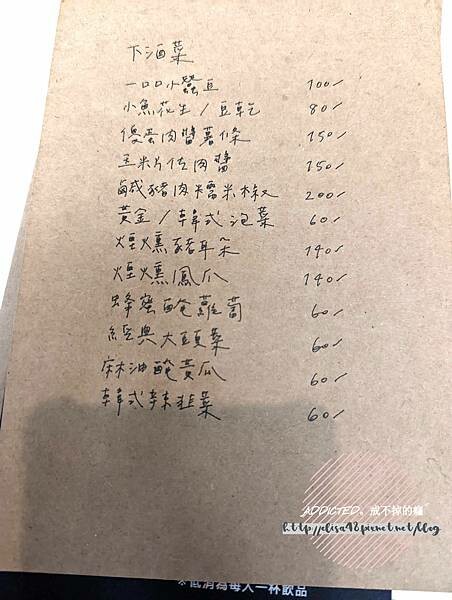 下酒菜
一口口小蠶豆 100/
小魚花生/豆乾 80/
優蛋肉醬薯條 150/
玉米片佐肉醬 150/
鹹豬肉糯米椒 200/
黃金/韓式泡菜 60/
煙燻豬耳朵 140/
煙燻鳳爪 140/
蜂蜜醃蘿蔔 60/
經典大頭菜 60/
麻油醃黃瓜 60/
韓式辣韭菜 60/
ADDICTED、戒不掉的癮
http://elisa98.pixnet.net/blog
※低消為每人一杯飲品